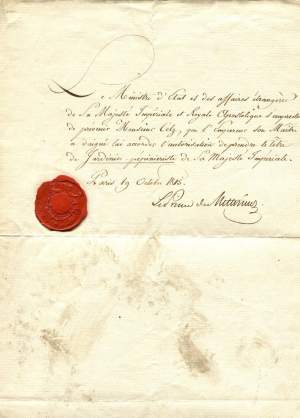 Le Ministre d'Etat et des affaires étrangères
de Sa Majesté Impériale et Royale Apostolique s'empresse
de prévenir Monsieur Cels, que l'Empereur Son Maître
a daigné lui accorder l'autorisation de prendre le titre
de Jardinier pépiniériste de Sa Majesté Impériale.
Paris 19 Octobre 1815.
Le Prince de Metternich